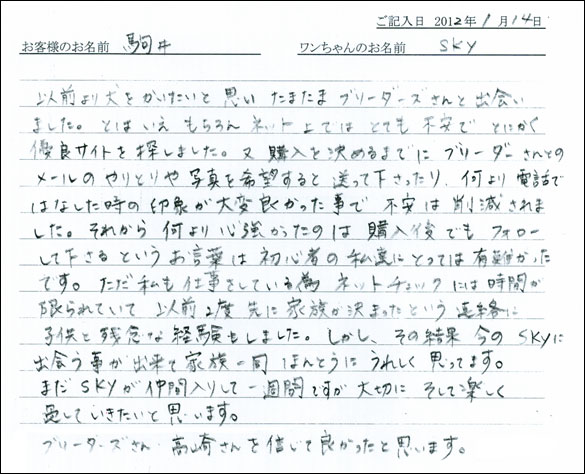 ご記入日 2012年 1月14日
お客様のお名前 駒井 ワンちゃんのお名前 SKY
以前より犬をかいたいと思い たまたま ブリーダーズさんと出会い
ました。とはいえ もちろん ネット上では とても 不安で とにかく
優良サイトを探しました。又 購入を決めるまでに ブリーダーさんとの
メールのやりとりや写真を希望すると送って下さったり、何より電話で
はなした時の印象が大変良かった事で 不安は削減されま
した。それから 何より心強かったのは 購入後でもフォロー
して下さるというお言葉は初心者の私達にとっては有難かった
です。ただ私も仕事をしている為 ネットチェックには時間が
限られていて 以前2度 先に家族が決まったという連絡に
子供と残念な経験もしました。しかし、その結果 今のSKYに
出会う事が出来て家族一同 ほんとうに うれしく 思ってます。
まだSKYが仲間入りして 一週間ですが 大切に そして楽しく
過していきたいと思います。
ブリーダーズさん 高山崎さんを信じて良かったと思います。